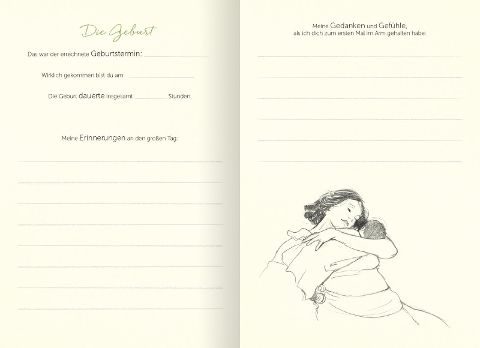 Die Geburt
Das war der errechnete Geburtstermin:
Wirklich gekommen bist du am
Die Geburt dauerte insgesamt Stunden.
Meine Erinnerungen an den großen Tag:
Meine Gedanken und Gefühle,
als ich dich zum ersten Mal im Arm gehalten habe: